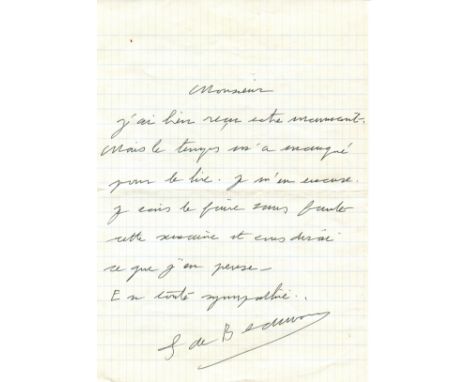 Monsieur
j'ai bien reçu votre manuscrit.
Mais le temps m'a manqué
pour le lire. Je m'en excuse.
Je vais le faire sans faute
cette semaine et vous dirai
ce que j'en pense –
En toute sympathie..
S de Beauvoir